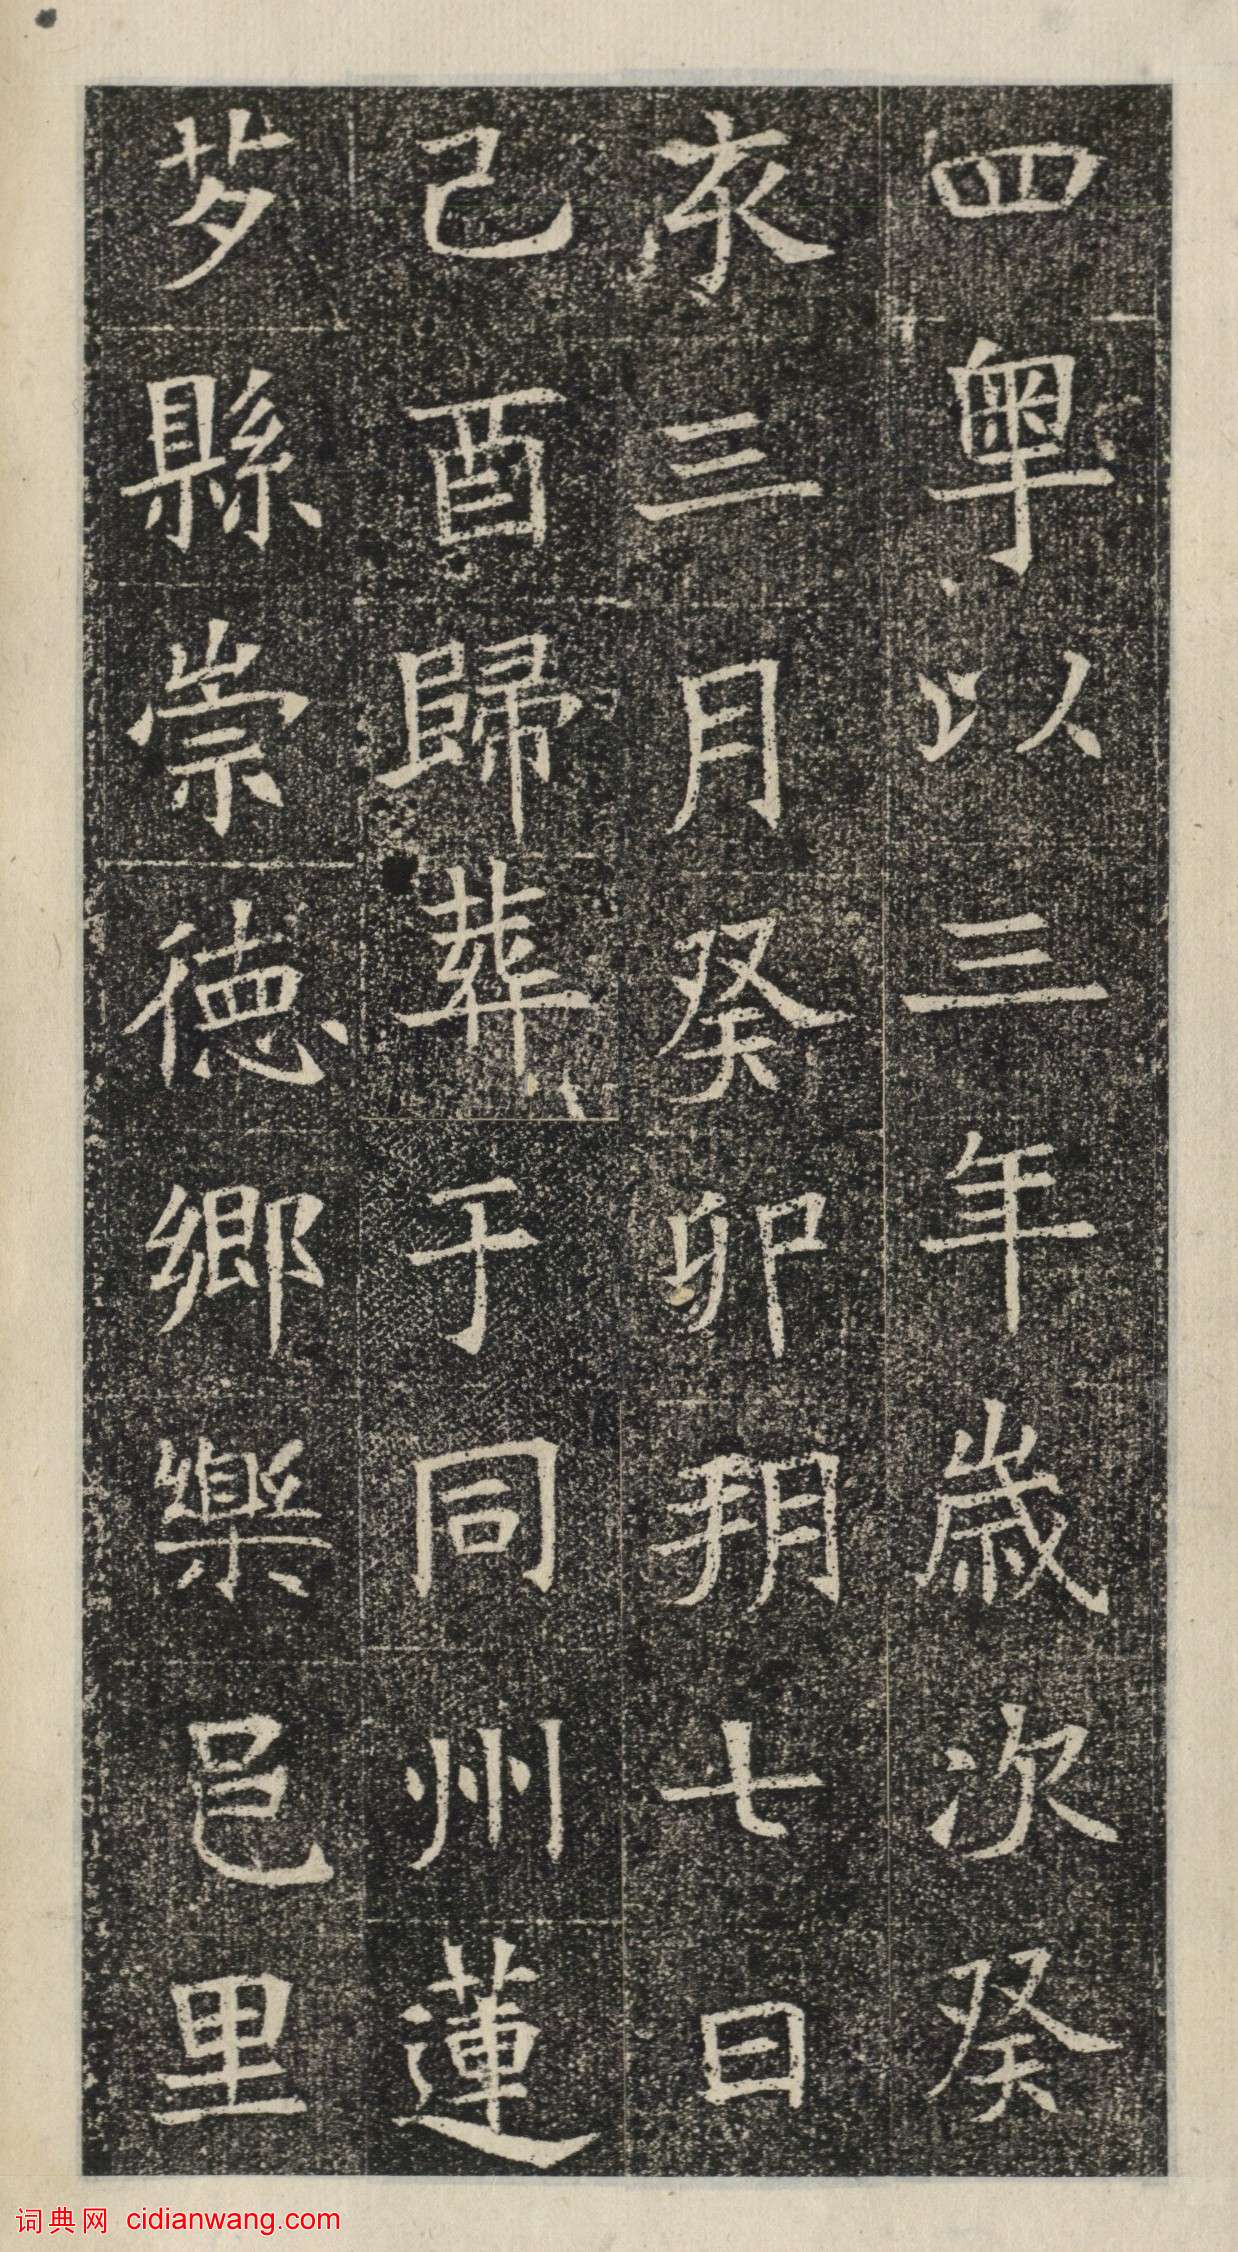 四粤以三年歲次癸
亥三月癸卯朔七日
己酉歸葬于同州蓮
芍縣崇德鄉樂邑里
词典网 cidianwang.com